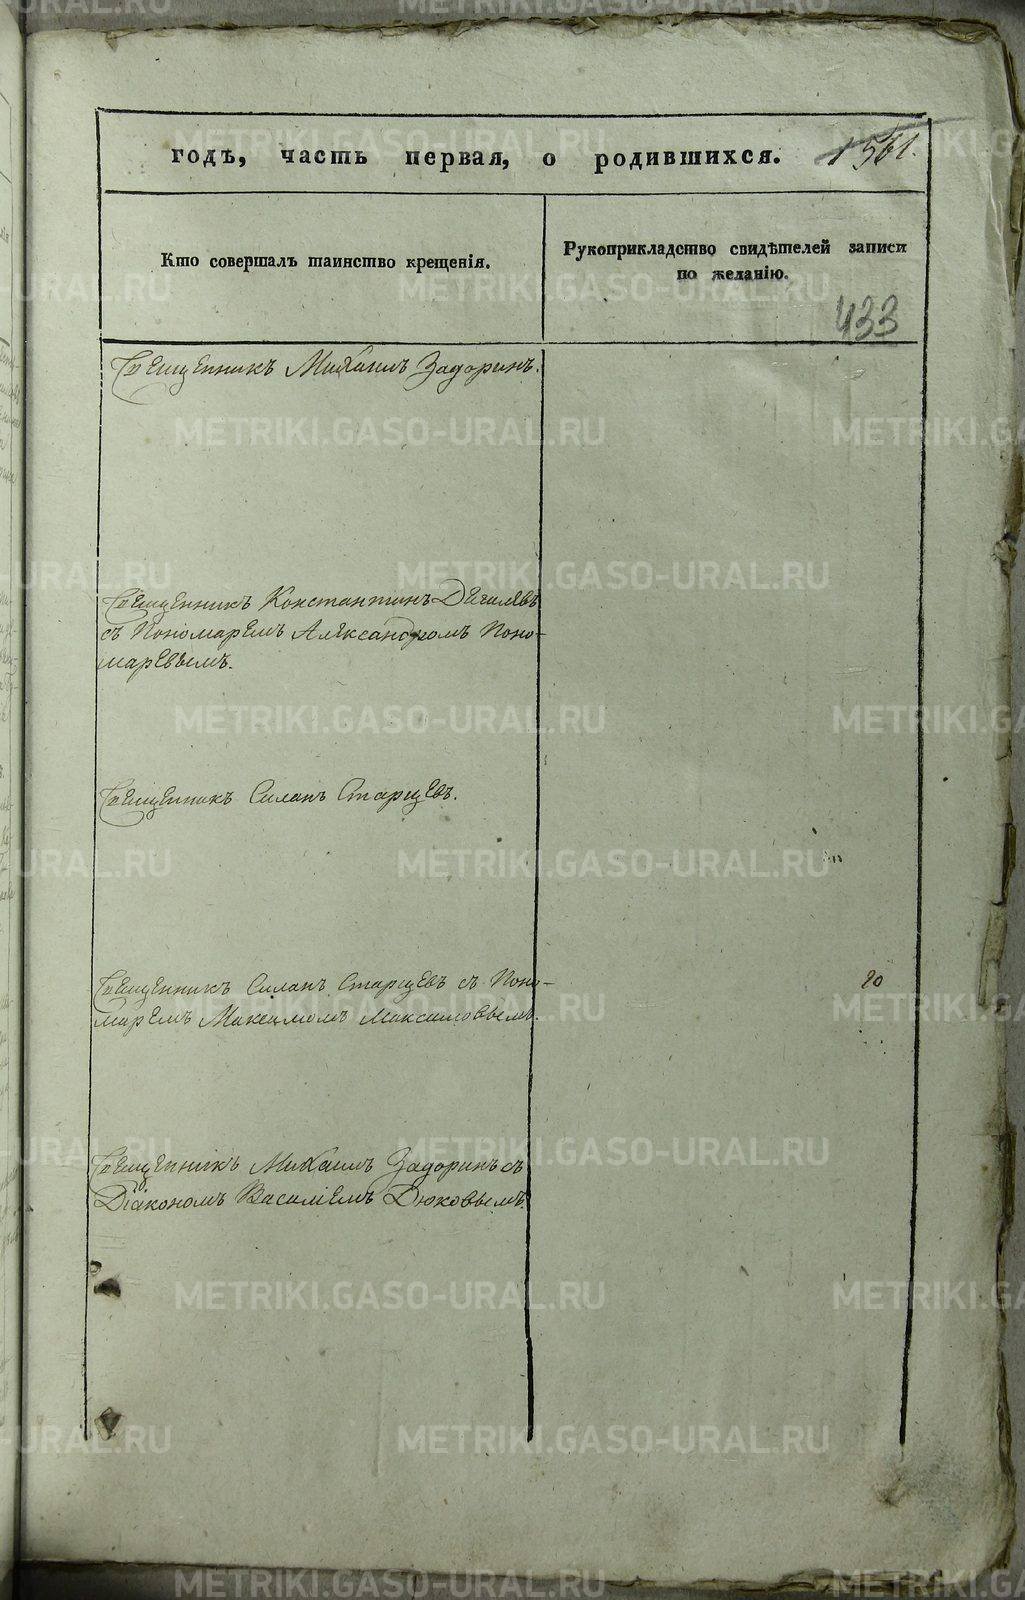 годъ, часть первая, о родившихся. 561.
Кто совершалъ таинство крещенія.
Рукоприкладство свидѣтелей записи
по желанію.
433
Священникъ Михаилъ Задоринъ.
Священникъ Константинъ Дягилевъ
съ Пономаремъ Александромъ Поно-
маревымъ.
Священникъ Силанъ Старцевъ.
Священникъ Силанъ Старцевъ съ Поно-
маремъ Максимомъ Максимовымъ.
20
Священникъ Михаилъ Задоринъ съ
Діакономъ Василіемъ Дюковымъ.
METRIKI.GASO-URAL.RU